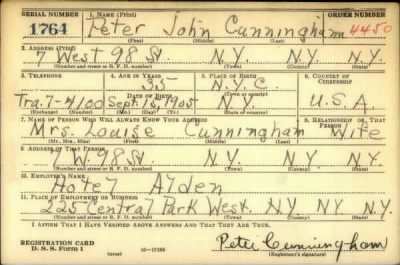 SERIAL NUMBER 1. NAME (Print) ORDER NUMBER
1764 Peter John Cunningham 4450
(First) (Middle) (Last)
2. ADDRESS (Print)
7 West 98 St. N.Y. N.Y. N.Y.
(Number and street or R. F. D. number) (Town) (County) (State)
3. TELEPHONE 4. AGE IN YEARS 5. PLACE OF BIRTH 6. COUNTRY OF CITIZENSHIP
35 N.Y.C.
DATE OF BIRTH (Town or county)
Tra. 7-4100 Sept. 15, 1905 N.Y. U.S.A.
(Exchange) (Number) (Mo.) (Day) (Yr.) (State or country)
7. NAME OF PERSON WHO WILL ALWAYS KNOW YOUR ADDRESS 8. RELATIONSHIP OF THAT PERSON
Mrs. Louise Cunningham Wife
(Mr., Mrs., Miss) (First) (Middle) (Last)
9. ADDRESS OF THAT PERSON
7 W. 98 St. N.Y. N.Y. N.Y.
(Number and street or R. F. D. number) (Town) (County) (State)
10. EMPLOYER'S NAME
Hotel Alden
11. PLACE OF EMPLOYMENT OR BUSINESS
225 Central Park West N.Y. N.Y. N.Y.
(Number and street or R. F. D. number) (Town) (County) (State)
I AFFIRM THAT I HAVE VERIFIED ABOVE ANSWERS AND THAT THEY ARE TRUE.
REGISTRATION CARD
D. S. S. FORM 1 (over) Peter Cunningham